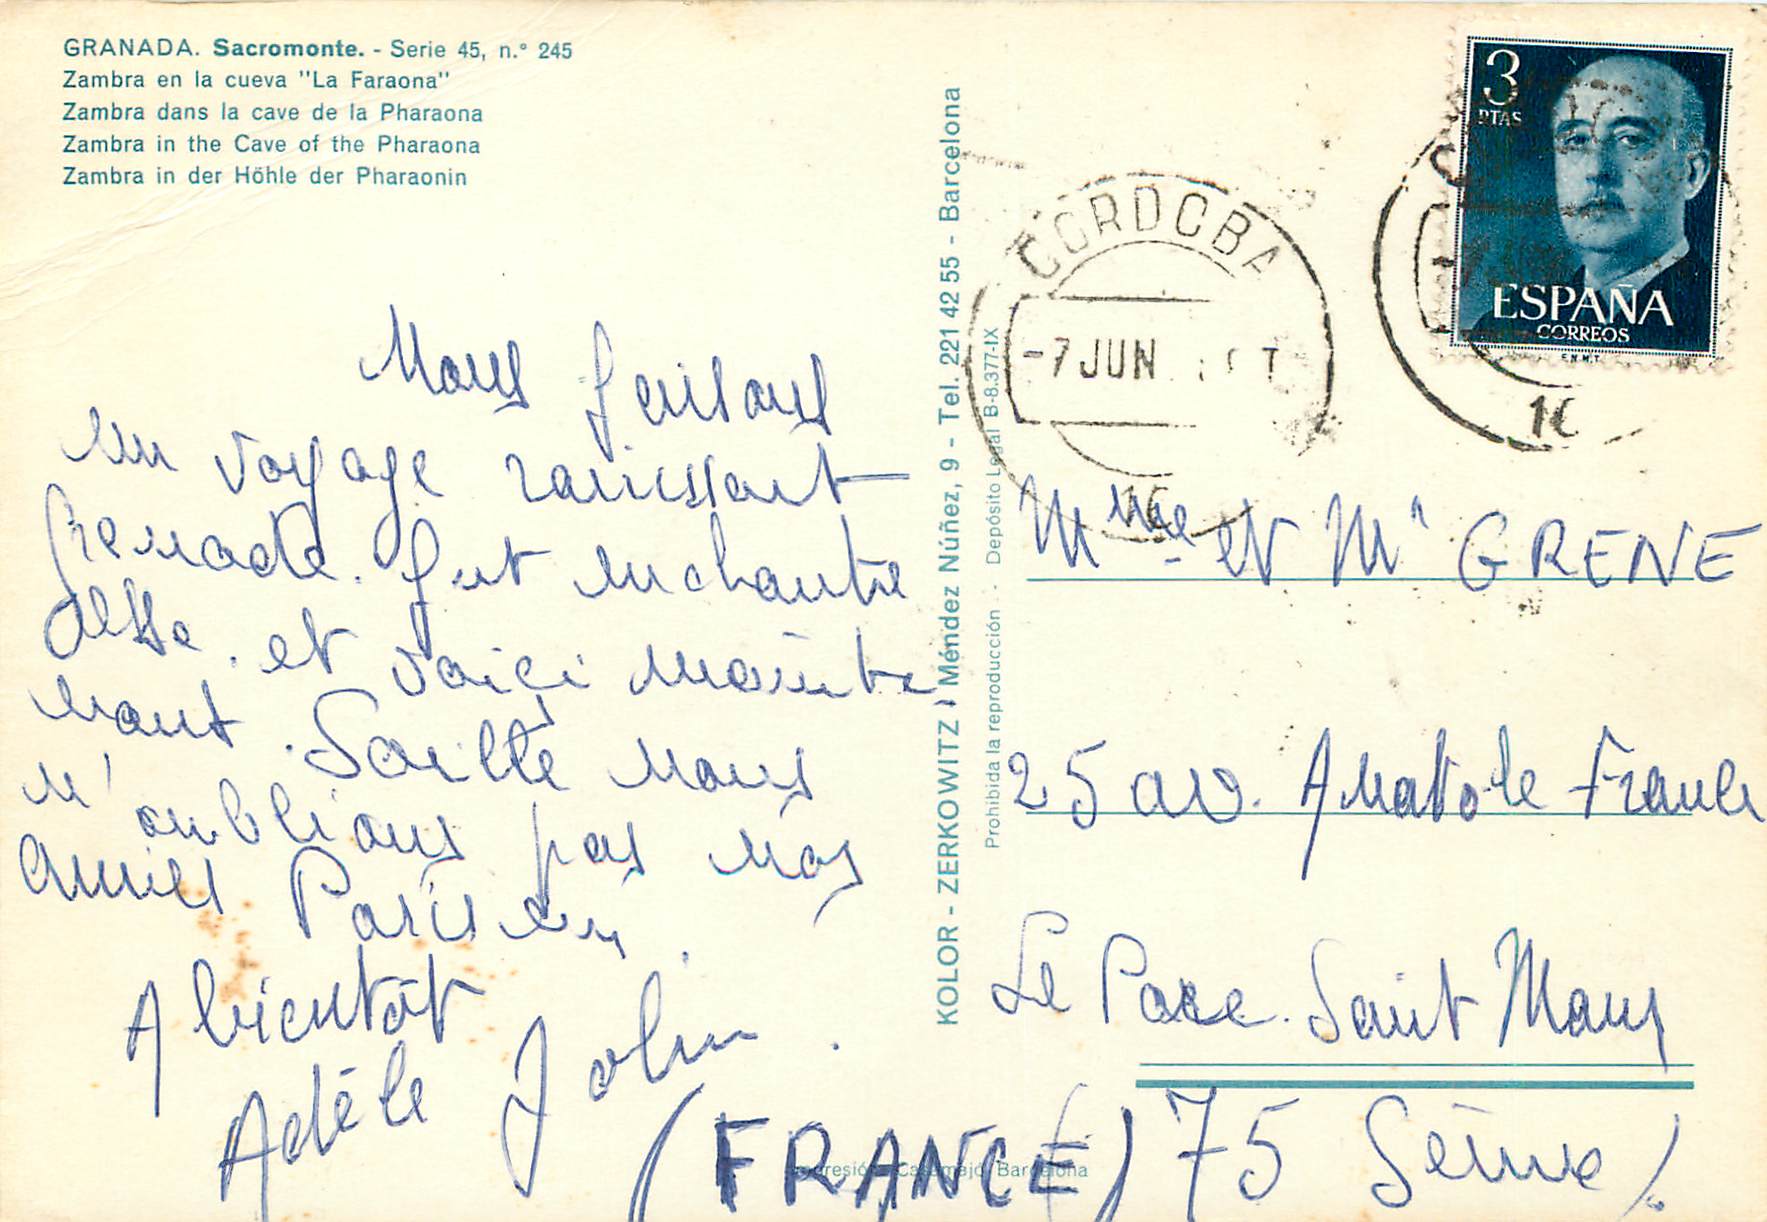 GRANADA. Sacromonte. - Serie 45, n.° 245
Zambra en la cueva "La Faraona"
Zambra dans la cave de la Pharaona
Zambra in the Cave of the Pharaona
Zambra in der Höhle der Pharaonin
Nous faisons
un voyage ravissant
Grenade. fut enchante
resse. et voici mainte
nant Séville nous
n'oublions pas nos
amies Parisien
A bientôt
Adèle John
KOLOR - ZERKOWITZ, Méndez Núñez, 9 - Tel. 221 42 55 - Barcelona
Prohibida la reproducción - Depósito Legal B-8.377-IX
Impresión Casamajó Barcelona
CORDOBA
-7 JUN
3
PTAS
ESPAÑA
CORREOS
F.N.M.T.
Mme et Mr GRENE
25 av. Anatole France
Le Parc. Saint Maur
(FRANCE) 75 Seine